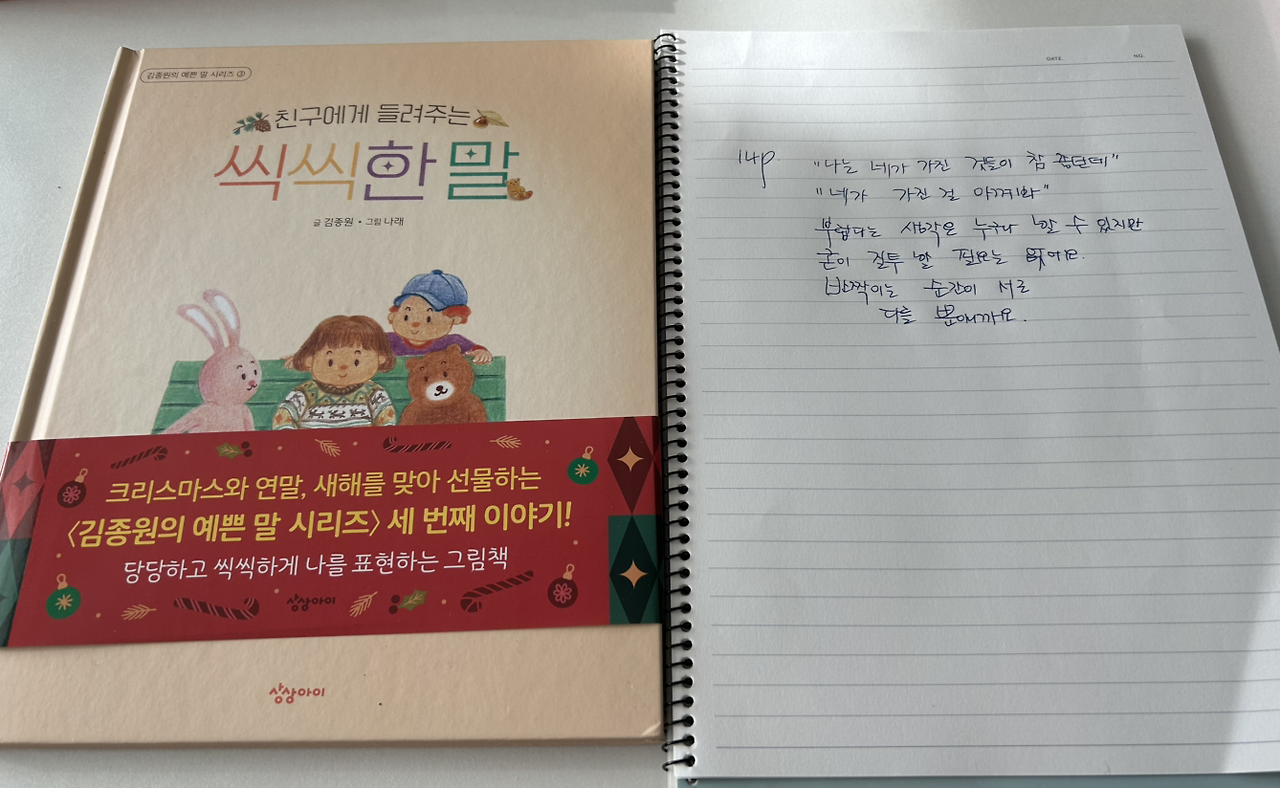 김종원의 예쁜 말 시리즈 ③
친구에게 들려주는
씩씩한 말
글 김종원 • 그림 나래
크리스마스와 연말, 새해를 맞아 선물하는
〈김종원의 예쁜 말 시리즈〉 세 번째 이야기!
당당하고 씩씩하게 나를 표현하는 그림책
상상아이
상상아이
DATE. NO.
14p "나는 네가 가진 것들이 참 좋던데"
"네가 가진 걸 아껴줘"
부럽다는 생각은 누구나 할 수 있지만
굳이 질투 할 필요는 없어요.
반짝이는 순간이 서로
다를 뿐이니까요.